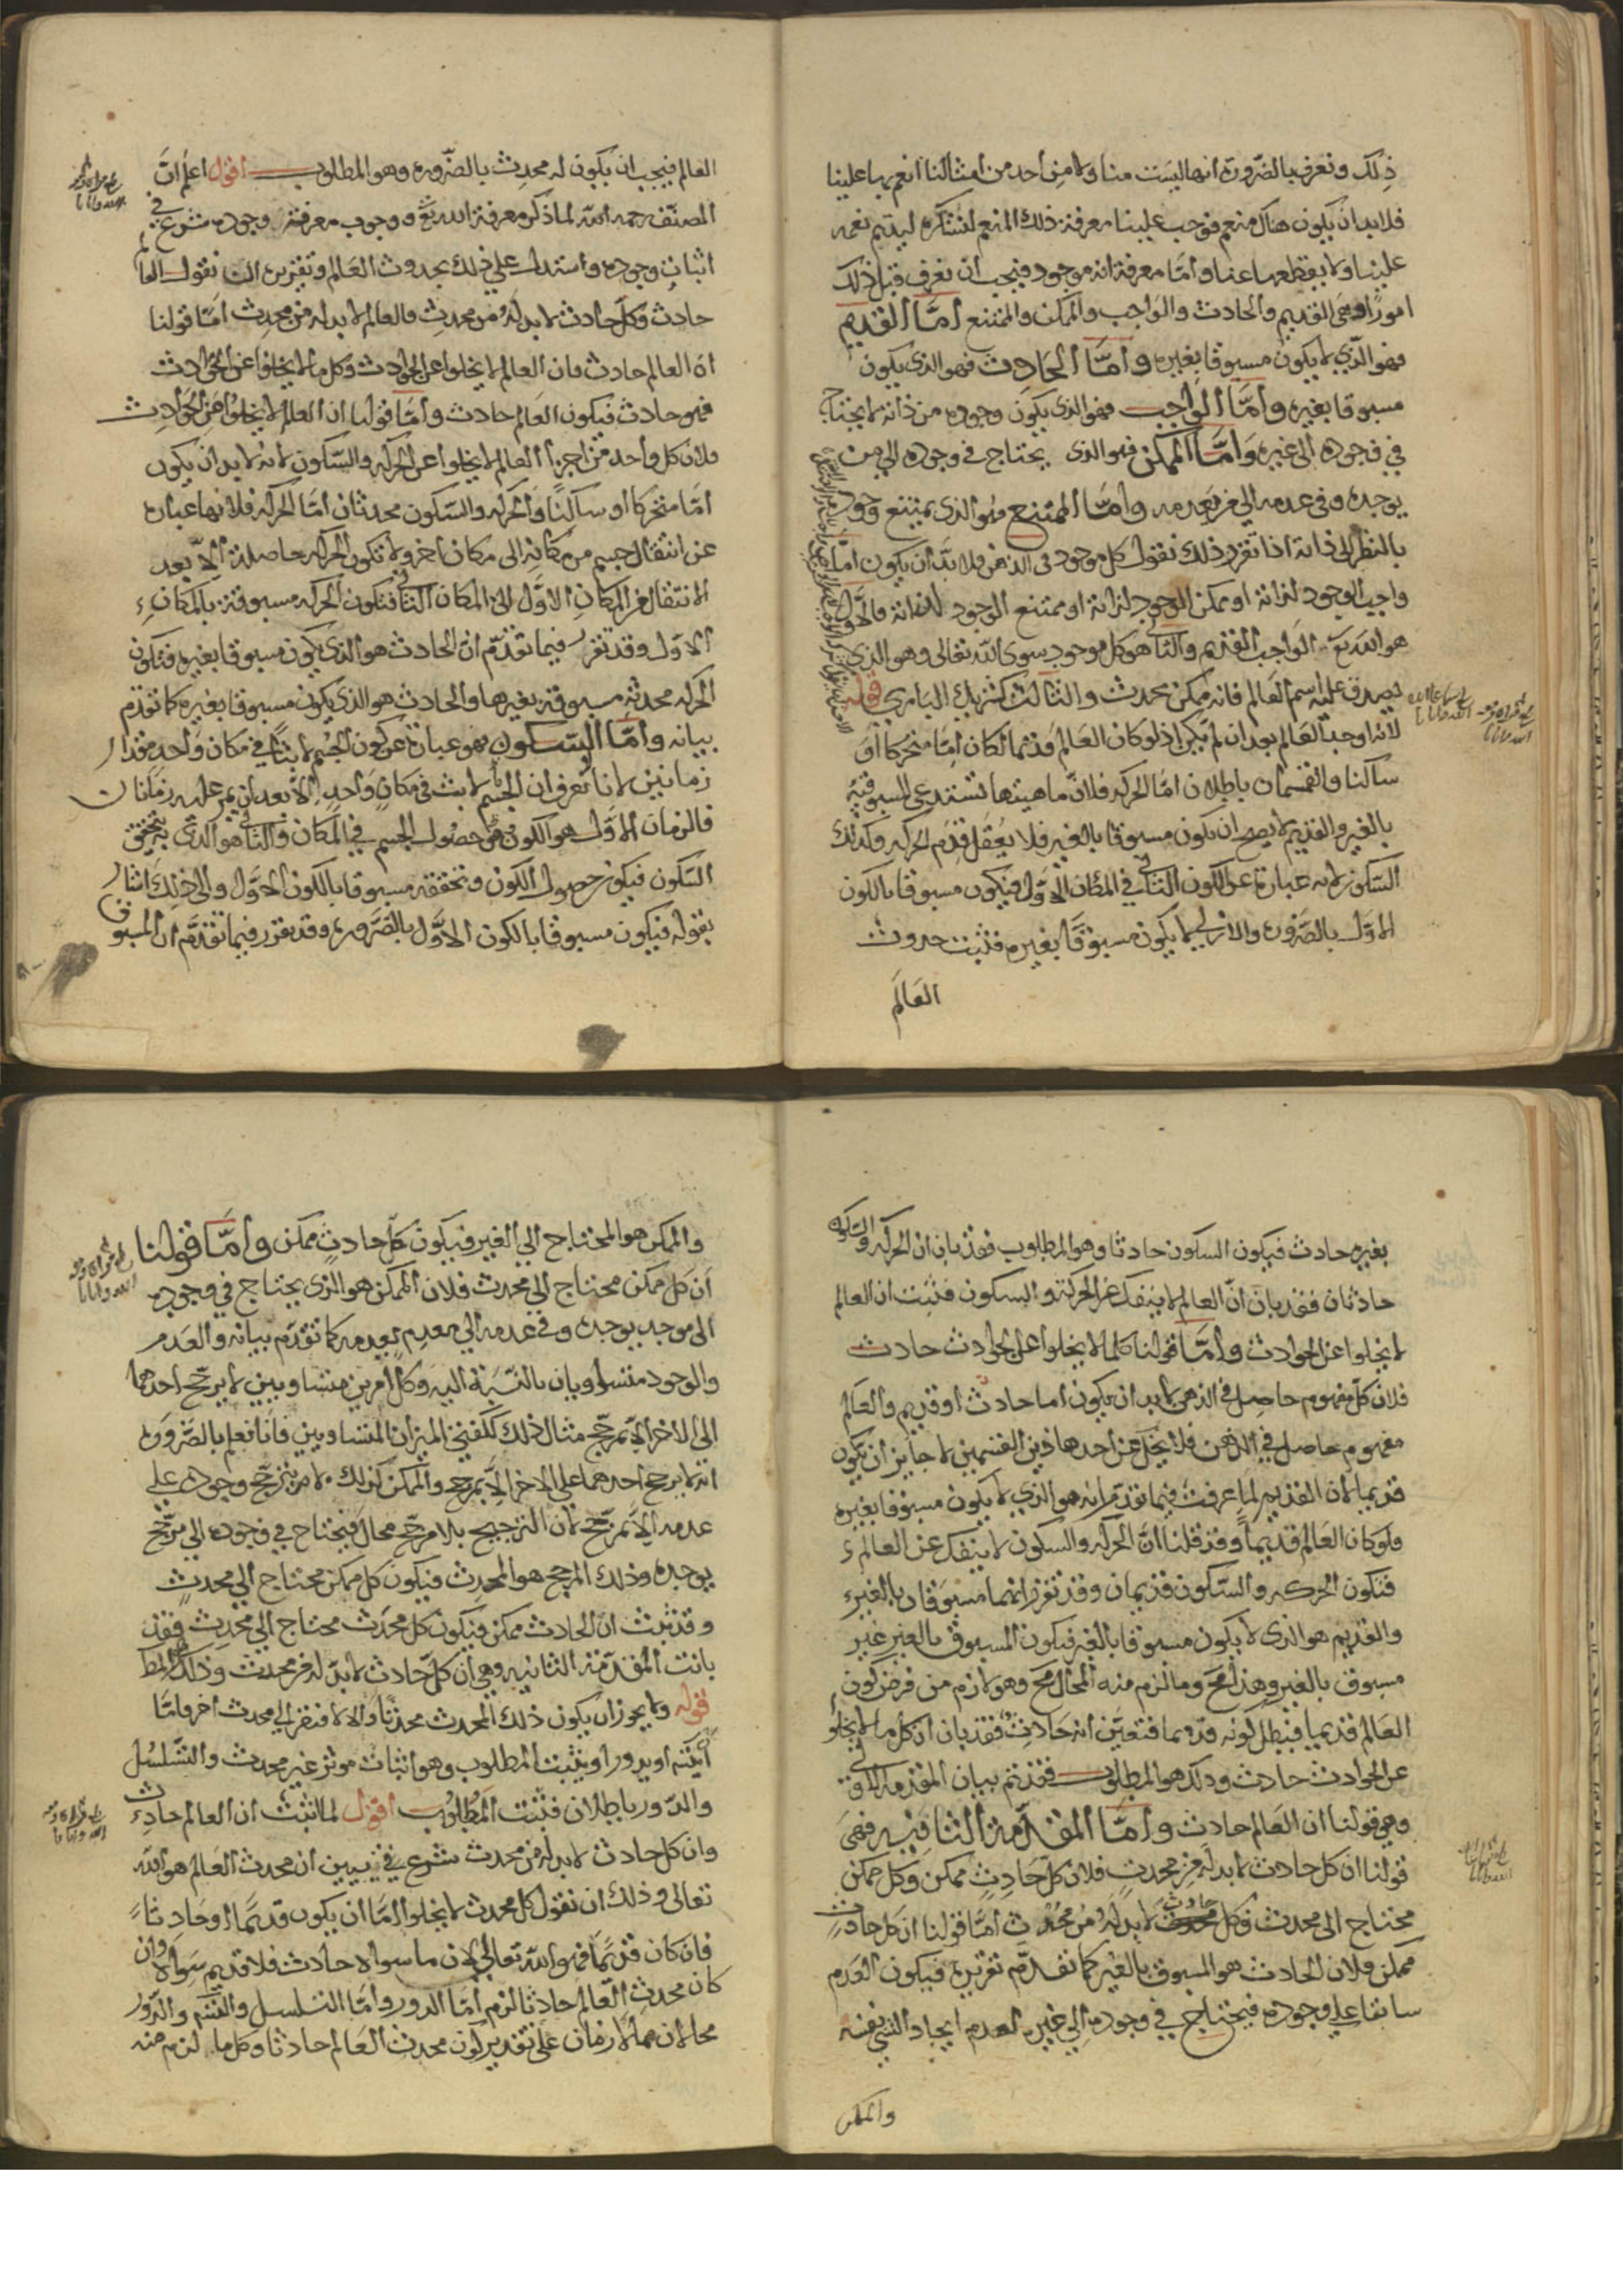 ذلك ونعرف بالضرورة انها ليست منا ولا من أحد من امثالنا انعم بها علينا
فلابد ان يكون هناك منعم فوجب علينا معرفة ذلك المنعم لنشكره ليديم نعمه
علينا ولا يقطعها عنا واما معرفة انه موجود فيجب ان نعرف قبل ذلك
امورًا وهى القديم والحادث والواجب والممكن والممتنع أمّا القديم
فهو الذي لا يكون مسبوقا بغيره وأمّا الحادث فهو الذى يكون
مسبوقا بغيره وأمّا الواجب فهو الذى يكون وجوده من ذاته لا يحتاج
في وجوده الى غيره وأمّا الممكن فهو الذى يحتاج فى وجوده الي من
يوجده وفى عدمه الي من يعدمه وامّا الممتنع فهو الذى يمتنع وجوده
بالنظر الى ذاته اذا تقرر ذلك نقول كل موجود فى الذهن فلا بدّ أن يكون امّا
واجب الوجود لذاته او ممكن الوجود لذاته او ممتنع الوجود لذاته فالاول
هو الله تع الواجب القديم والثاني هو كل موجود سوى الله تعالى وهو الذي
يصدق عليه اسم العالم فانه ممكن محدث والثالث كشريك الباري قوله
لانه اوجد العالم بعد ان لم يكن اذ لو كان العالم قديما لكان امّا متحركا اوَ
ساكنا والقسمان باطلان امّا الحركه فلانّ ماهيتها تستدعى المسبوقيّة
بالغير والقديم لا يصح ان يكون مسبوقا بالغير فلا يعقل قدم الحركه وكذلك
السكون لانه عبارة عن الكون الثاني في المكان الاوّل فيكون مسبوقا بالكون
الاوّل بالضرورة والازلي لا يكون مسبوقًا بغيره فثبت حدوث
العالم
العالم فيجب ان يكون له محدِث بالضّروره وهو المطلوب أقول اعلم انّ
المصنّف رحمه الله لما ذكر معرفة الله تع ووجوب معرفة وجوده شرع في
اثبات وجوده واستدل علي ذلك بحدوث العالم وتقريره ان نقول العالم
حادث وكل حادث لا بد له من محدث فالعالم لا بد له من محدث امّا قولنا
ان العالم حادث فان العالم لا يخلوا عن الحوادث وكل ما لا يخلوا عن الحوادث
فهو حادث فيكون العالم حادث وأمّا قولنا ان العلم لا يخلوا من الحوادث
فلان كل واحد من اجزاء العالم لا يخلوا عن الحركه والسكون لانه لا بد ان يكون
امّا متحركا او ساكنًا والحركه والسكون محدثان امّا الحركه فلانها عبارة
عن انتقال جسم من مكانه الى مكان اخر ولا تكون الحركه حاصلة الّا بعد
الانتقال عن المكان الاوّل الى المكان الثاني فتكون الحركه مسبوقة بالمكان
الاوّل وقد تقرر فيما تقدّم انّ الحادث هو الذي يكون مسبوقا بغيره فتكون
الحركه محدثه مسبوقة بغيرها والحادث هو الذي يكون مسبوقا بغيره كما تقدم
بيانه وأمّا السكون فهو عبارة عن كون الجسم لابثًا في مكان واحد مقدار
زمانين لانا نعرف ان الجسم لابث فى مكان واحد الّا بعد ان يمر عليه زمانان
فالزمان الاوّل هو الكون في حصول الجسم في المكان والثاني هو الذي يتحقق
السّكون فيكون حصول الكون وتحققه مسبوقا بالكون الاوّل والى ذلك اشار
بقوله فيكون مسبوقا بالكون الاوّل بالضّروره وقد تقرر فيما تقدّم ان المسبوق
بغيره حادث فيكون السكون حادثا وهو المطلوب فقد بان ان الحركه والسكون
حادثان فقد بان انّ العالم لا ينفك عن الحركة والسكون فثبت ان العالم
لا يخلوا عن الحوادث وأمّا قولنا كلما لا يخلوا عن الحوادث حادث
فلان كلّ مفهوم حاصل في الذهن لا بد ان يكون اما حادث او قديم والعالم
مفهوم حاصل في الذهن فلا يخل عن أحد هاذين القسمين لا جايز ان يكون
قديما لان القديم لما عرفت فيما تقدّم انه هو الذي لا يكون مسبوقا بغيره
فلو كان العالم قديماً وقد قلنا انّ الحركه والسكون لا ينفك عن العالم
فتكون الحركه والسّكون قديمان وقد تقرر انهما مسبوقان بالغير
والقديم هو الذى لا يكون مسبوقا بالغير فيكون المسبوق بالغير غير
مسبوق بالغير وهذا مح وما لزم منه المحال مح وهو لازم من فرض كون
العالم قديما فيبطل كونه قديما فتعيّن انه حادث فقد بان ان كل ما لا يخلوا
عن الحوادث حادث وذلك هو المطلوب فقد تم بيان المقدمه الاولى
وهي قولنا ان العالم حادث وأمّا المقدّمة الثانيه فهىَ
قولنا ان كل حادث لا بد له من محدث فلان كلّ حادثٍ ممكن وكل ممكن
محتاج الى محدث فكل حادث لا بد له من محدث أمّا قولنا ان كل حادث
ممكن فلان الحادث هو المسبوق بالغير كما تقدّم تقريره فيكون العدم
سابقا على وجوده فيحتاج في وجوده الي غيره لعدم ايجاد الشي نفسه
والممكن
والممكن هو المحتاج الي الغير فيكون كلّ حادث ممكن وأمّا قولنا
أن كل ممكن محتاج الي محدث فلان الممكن هو الذى يحتاج في وجوده
الى موجد يوجده وفي عدمه الي معدم يعدمه كما تقدّم بيانه والعدم
والوجود متساويان بالنّسبة اليه وكل أمرين متساويين لا يرجّح احدهما
الى الاخر الّا بمرجّح مثال ذلك ككفتي الميزان المتساويين فانا نعلم بالضّرورة
انه لا يرجح احدهما على الاخر الّا بمرجح والممكن كذلك لا يترجّح وجوده على
عدمه الّا بمرجّح لان الترجيح بلا مرجّح محال فيحتاج في وجوده الي مرجّح
يوجده وذلك المرجح هو المحدث فيكون كل ممكن محتاج الي محدث
وقد ثبت انّ الحادث ممكن فيكون كل محدَث محتاج الي محدِث فقد
بانت المقدّمة الثانيه وهي ان كلّ حادث لا بدّ له من محدث وذلك هو المط
قوله ولا يجوز ان يكون ذلك المحدث محدثًا والا لافتقر الي محدث اخر فامّا
او يدور او يثبت المطلوب وهو اثبات موثر غير محدث والتّسلسل
والدّور باطلان فثبت المطلوب اقول لما اثبت ان العالم حادث
وان كل حادث لا بد له من محدث شرع في تبيين ان محدث العالم هو الله
تعالى وذلك ان نقول كل محدث لا يخلوا امّا ان يكون قديمًا او حادثاً
فان كان قديمًا فهو الله تعالي لان ما سواه حادث فلا قديم سواه وان
كان محدث العالم حادثا لزم امّا الدور وامّا التسلسل والقسم والدّور
محالان لانهما لازمان على تقدير كون محدث العالم حادثا وكل ما لزم منه